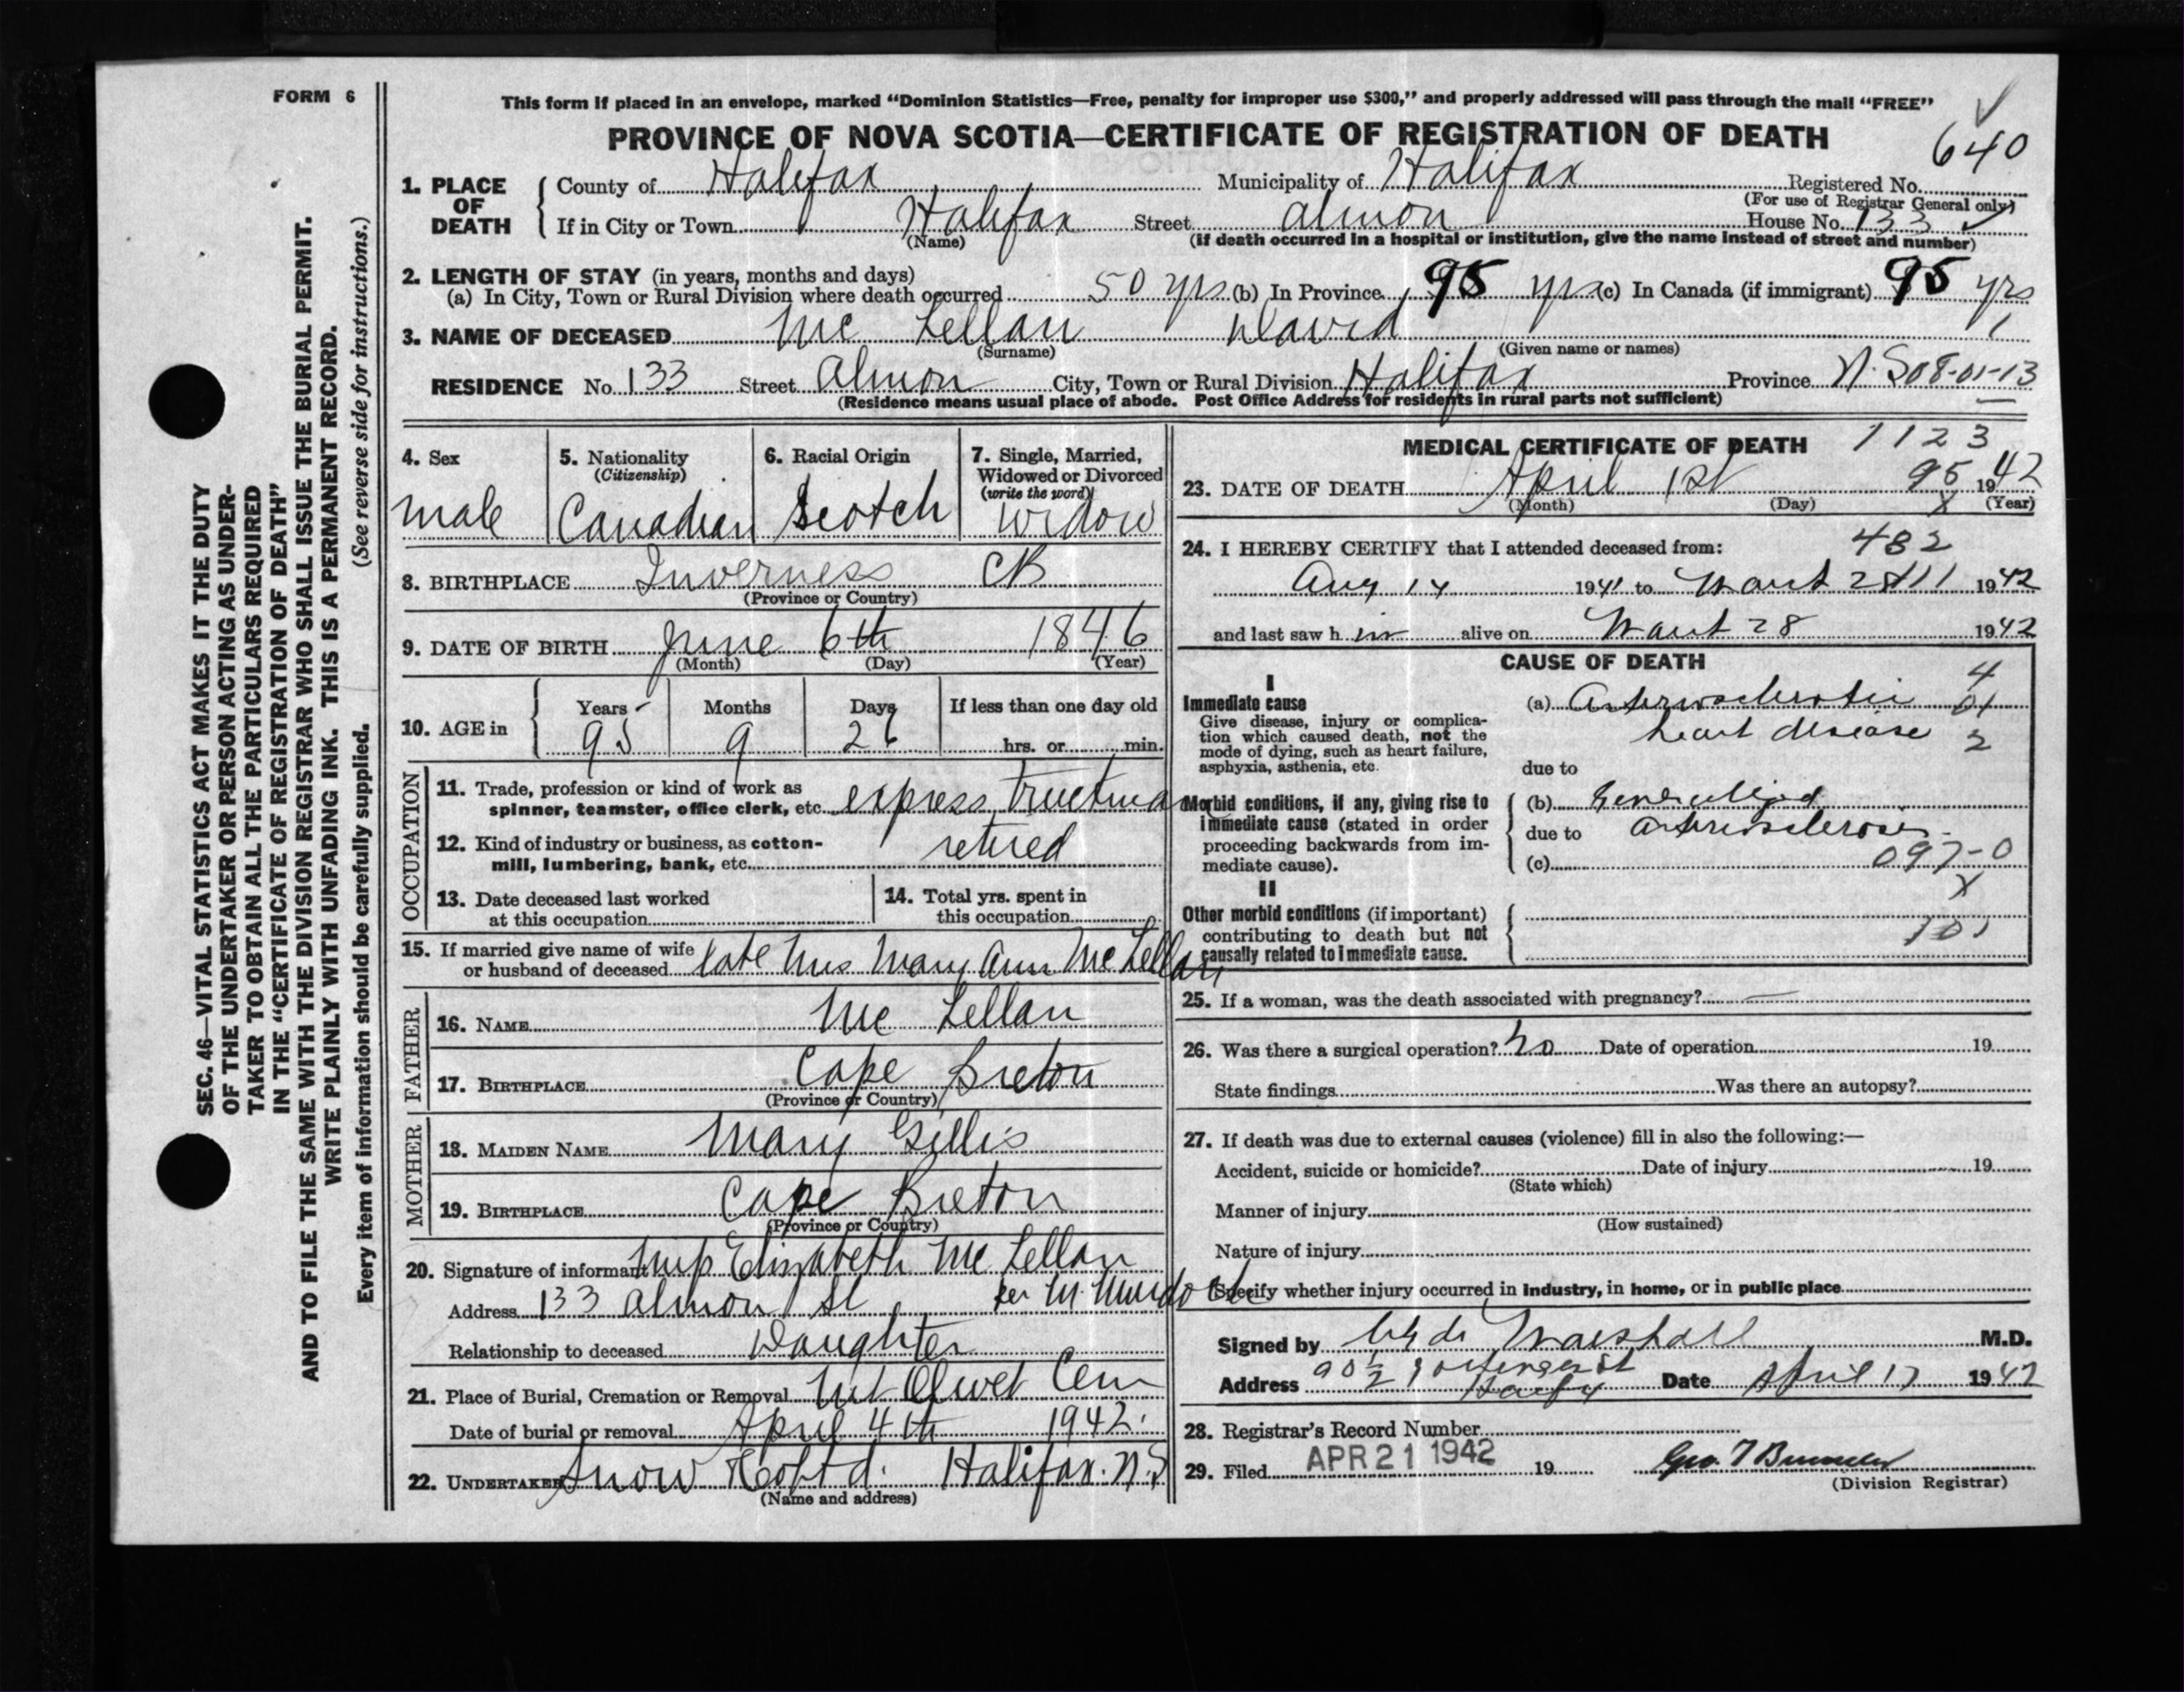 FORM 6
This form if placed in an envelope, marked “Dominion Statistics—Free, penalty for improper use $300,” and properly addressed will pass through the mail “FREE”
PROVINCE OF NOVA SCOTIA—CERTIFICATE OF REGISTRATION OF DEATH
640
1. PLACE OF DEATH County of Halifax Municipality of Halifax Registered No.
(For use of Registrar General only)
If in City or Town Halifax Street Almon House No. 133
(Name) (If death occurred in a hospital or institution, give the name instead of street and number)
2. LENGTH OF STAY (in years, months and days)
(a) In City, Town or Rural Division where death occurred 50 yrs (b) In Province 95 yrs (c) In Canada (if immigrant) 95 yrs
3. NAME OF DECEASED Mc Lellan David
(Surname) (Given name or names)
RESIDENCE No. 133 Street Almon City, Town or Rural Division Halifax Province N.S 08-01-13
(Residence means usual place of abode. Post Office Address for residents in rural parts not sufficient)
4. Sex male
5. Nationality (Citizenship) Canadian
6. Racial Origin Scotch
7. Single, Married, Widowed or Divorced (write the word) widow
8. BIRTHPLACE Inverness CB
(Province or Country)
9. DATE OF BIRTH June 6th 1846
(Month) (Day) (Year)
10. AGE in Years Months Days If less than one day old
95 9 26 hrs. or min.
OCCUPATION
11. Trade, profession or kind of work as
spinner, teamster, office clerk, etc. express truckman
12. Kind of industry or business, as cotton-
mill, lumbering, bank, etc. retired
13. Date deceased last worked
at this occupation
14. Total yrs. spent in
this occupation
15. If married give name of wife
or husband of deceased late Mrs Mary Ann McLellan
FATHER
16. NAME Mc Lellan
17. BIRTHPLACE Cape Breton
(Province or Country)
MOTHER
18. MAIDEN NAME Mary Gillis
19. BIRTHPLACE Cape Breton
(Province or Country)
20. Signature of informant Miss Elizabeth Mc Lellan
Address 133 Almon St per M. Murdoch
Relationship to deceased Daughter
21. Place of Burial, Cremation or Removal Mt Olivet Cem
Date of burial or removal April 4th 1942.
22. UNDERTAKER Snow & Co Ltd. Halifax. N.S
(Name and address)
MEDICAL CERTIFICATE OF DEATH 1123
23. DATE OF DEATH April 1st 95 1942
(Month) (Day) x (Year)
24. I HEREBY CERTIFY that I attended deceased from: 482
Aug 14 1941 to March 28 1942
and last saw h im alive on March 28 1942
CAUSE OF DEATH
I
Immediate cause
Give disease, injury or complica-
tion which caused death, not the
mode of dying, such as heart failure,
asphyxia, asthenia, etc.
(a) Arteriosclerotic 4
01
heart disease 2
due to
Morbid conditions, if any, giving rise to
immediate cause (stated in order
proceeding backwards from im-
mediate cause).
(b) Generalized
due to arteriosclerosis
(c) 097-0
x
II
Other morbid conditions (if important)
contributing to death but not
causally related to immediate cause.
101
25. If a woman, was the death associated with pregnancy? —
26. Was there a surgical operation? No Date of operation 19
State findings Was there an autopsy?
27. If death was due to external causes (violence) fill in also the following:—
Accident, suicide or homicide? Date of injury 19
(State which)
Manner of injury
(How sustained)
Nature of injury
Specify whether injury occurred in industry, in home, or in public place
Signed by Clyde Marshall M.D.
Address 90½ Gottingen St Date April 17 1942
28. Registrar's Record Number
29. Filed APR 21 1942 19
(Division Registrar)
SEC. 46—VITAL STATISTICS ACT MAKES IT THE DUTY
OF THE UNDERTAKER OR PERSON ACTING AS UNDER-
TAKER TO OBTAIN ALL THE PARTICULARS REQUIRED
IN THE “CERTIFICATE OF REGISTRATION OF DEATH”
AND TO FILE THE SAME WITH THE DIVISION REGISTRAR WHO SHALL ISSUE THE BURIAL PERMIT.
WRITE PLAINLY WITH UNFADING INK. THIS IS A PERMANENT RECORD.
Every item of information should be carefully supplied. (See reverse side for instructions.)